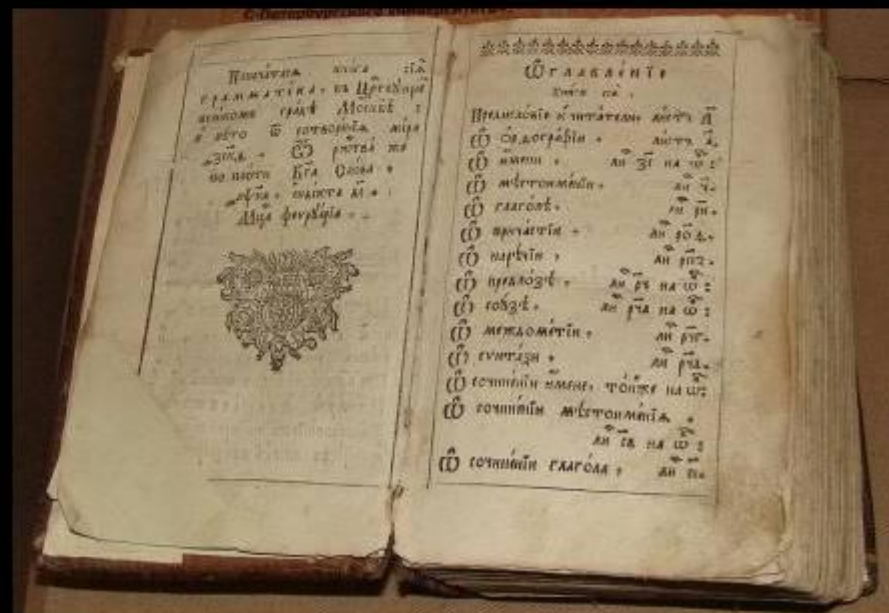 С-Петербургского университета
Писчатна книга сїѧ
грамматїка, въ Цр҃твꙋю
великомъ градѣ Мосъквѣ :
в лѣто ѿ сотворенїѧ мїра
Ѿ ржтва же
по плоти Бг҃а Слова ,
индїкта
Мц҃а феврꙋарїа .
Ѡглавленїе
книги сеѧ .
Предисловїе к читателю , листъ а҃
Ѡ орѳографїи , листъ а҃ .
Ѡ имени , ли зі на ѡ :
Ѡ мѣстоименїи , ли ч҃ .
Ѡ глаголѣ , ли ри .
Ѡ причастїи , ли род .
Ѡ нарѣчїи , ли рпз .
Ѡ предлозѣ , ли рч на ѡ :
Ѡ союзѣ , ли рча на ѡ :
Ѡ междометїи , ли рчг .
Ѡ сѵнтаѯи , ли рчд .
Ѡ сочиненїи имене , тойже на ѡ :
Ѡ сочиненїи мѣстоименїѧ ,
ли св на ѡ :
Ѡ сочиненїи глагола , ли